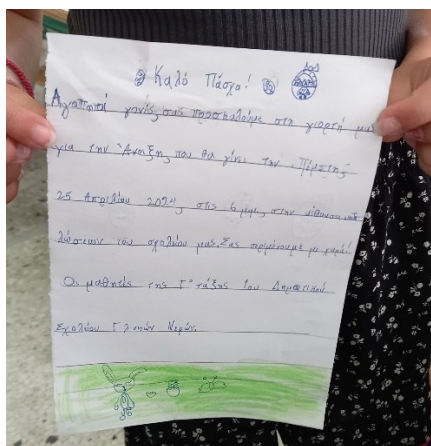 Καλό Πάσχα!
Αγαπητοί γονείς, σας προσκαλούμε στη γιορτή μας
για την Άνοιξη που θα γίνει την Πέμπτη
25 Απριλίου 2024, στις 6 μ.μ., στην αίθουσα εκδη
λώσεων του σχολείου μας. Σας περιμένουμε με χαρά!
Οι μαθητές της Γ' τάξης 1ου Δημοτικού
Σχολείου Γλυκών Νερών